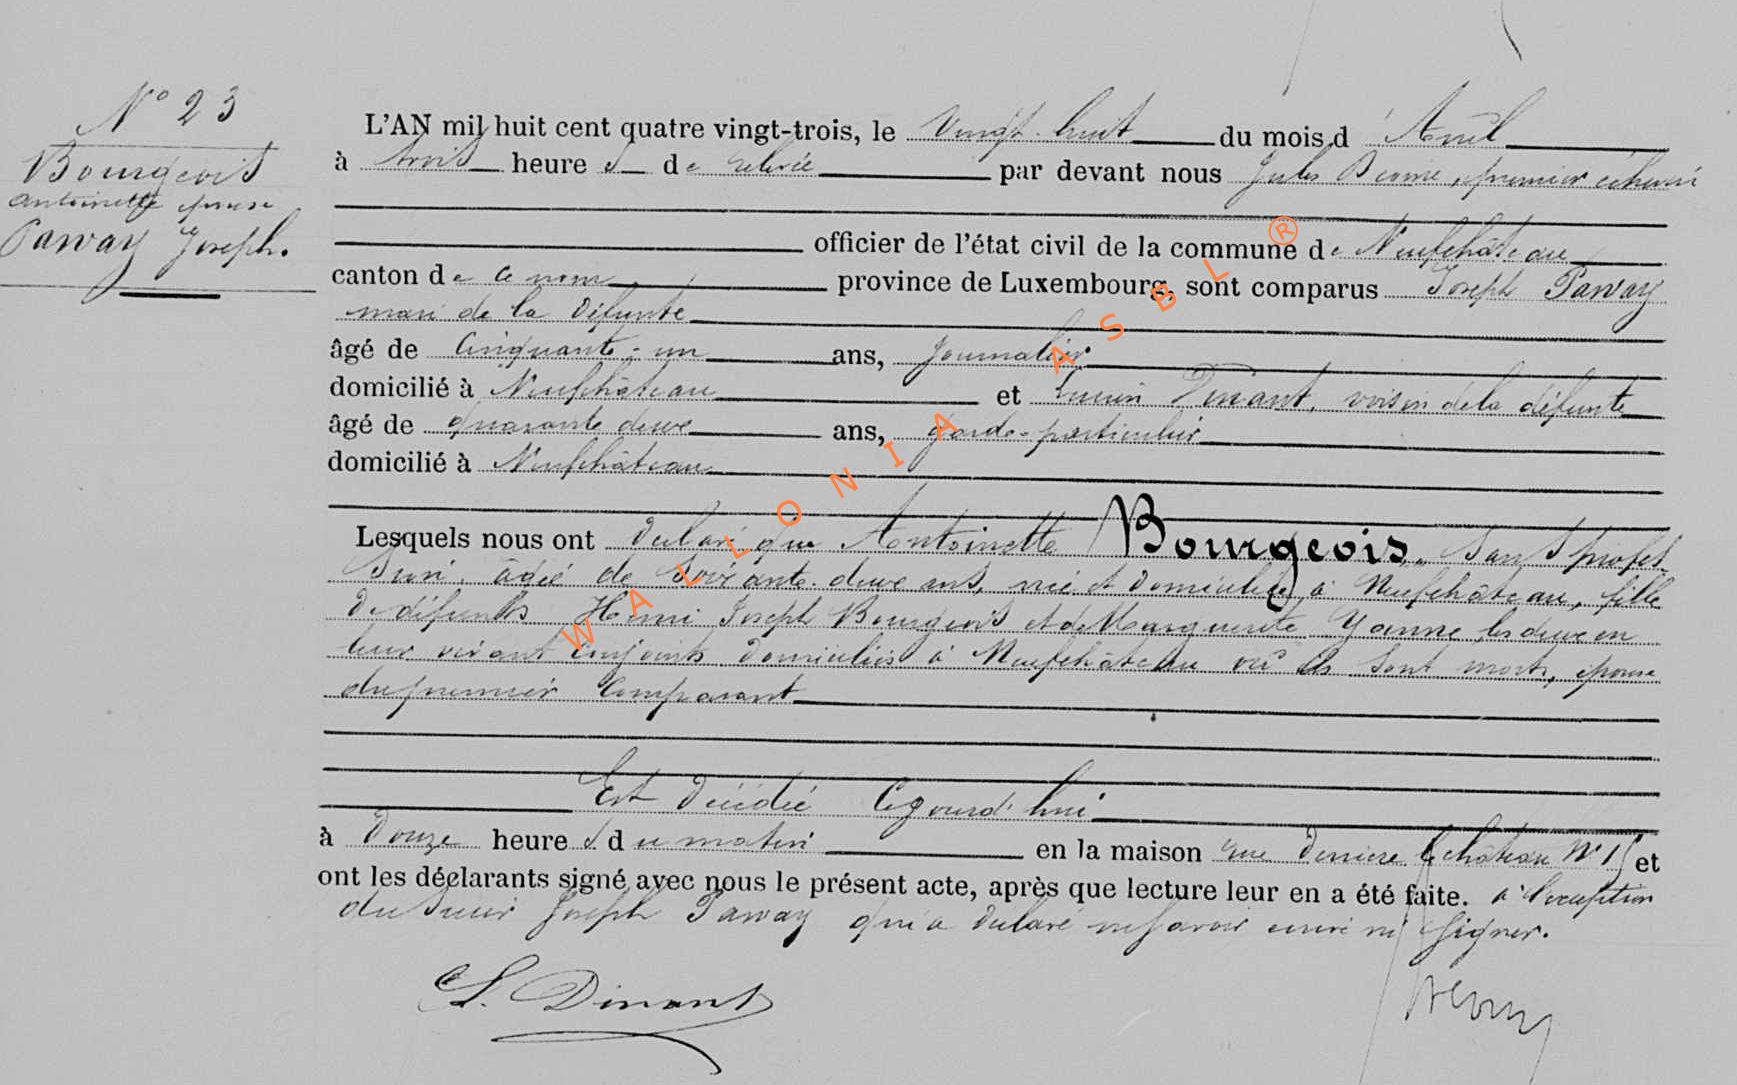 N° 23
Bourgeois
Antoinette épouse
Paway Joseph.
L'AN mil huit cent quatre vingt-trois, le vingt-huit du mois d'Avril
à trois heures de relevée par devant nous Jules, premier échevin
officier de l'état civil de la commune de Neufchâteau
canton de ce nom province de Luxembourg, sont comparus Joseph Paway
mari de la défunte
âgé de cinquante-un ans, journalier
domicilié à Neufchâteau et Lucien Dinant, voisin de la défunte
âgé de quarante deux ans, garde-particulier
domicilié à Neufchâteau
Lesquels nous ont déclaré que Antoinette Bourgeois, sans profes
sion, âgée de soixante-deux ans, née et domiciliée à Neufchâteau, fille
de défunts Henri Joseph Bourgeois et de Marguerite Yanne les deux en
leur vivant conjoints domiciliés à Neufchâteau où ils sont morts, épouse
du premier comparant
Est décédée cejourd'hui
à douze heures du matin en la maison rue derrière le château N° 15 et
ont les déclarants signé avec nous le présent acte, après que lecture leur en a été faite. à l'exception
du sieur Joseph Paway qui a déclaré ne savoir écrire ni signer.
L. Dinant
WALLONIA ASBL ®